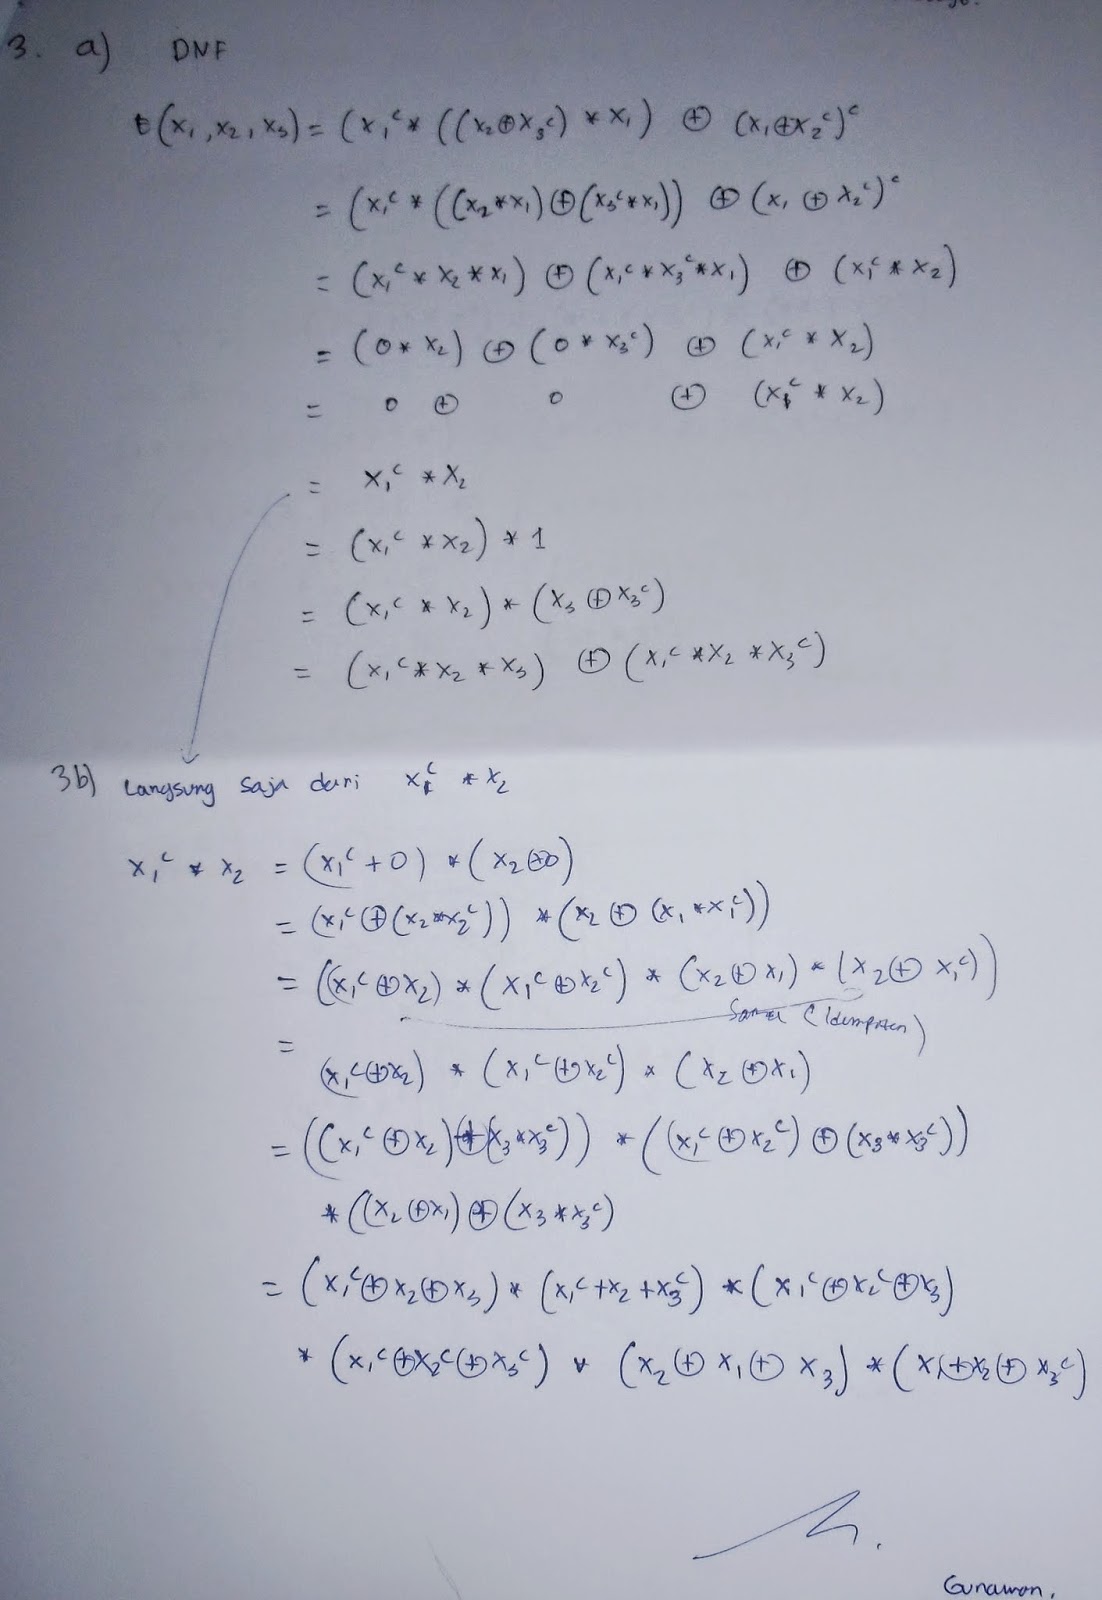 3. a) DNF
t(x₁, x₂, x₃) = (x₁ᶜ * ((x₂ ⊕ x₃ᶜ) * x₁) ⊕ (x₁ ⊕ x₂ᶜ)ᶜ
= (x₁ᶜ * ((x₂ * x₁) ⊕ (x₃ᶜ * x₁)) ⊕ (x₁ ⊕ x₂ᶜ)ᶜ
= (x₁ᶜ * x₂ * x₁) ⊕ (x₁ᶜ * x₃ᶜ * x₁) ⊕ (x₁ᶜ * x₂)
= (0 * x₂) ⊕ (0 * x₃ᶜ) ⊕ (x₁ᶜ * x₂)
= 0 ⊕ 0 ⊕ (x₁ᶜ * x₂)
= x₁ᶜ * x₂
= (x₁ᶜ * x₂) * 1
= (x₁ᶜ * x₂) * (x₃ ⊕ x₃ᶜ)
= (x₁ᶜ * x₂ * x₃) ⊕ (x₁ᶜ * x₂ * x₃ᶜ)
3b) Langsung saja dari x₁ᶜ * x₂
x₁ᶜ * x₂ = (x₁ᶜ + 0) * (x₂ ⊕ 0)
= (x₁ᶜ ⊕ (x₂ * x₂ᶜ)) * (x₂ ⊕ (x₁ * x₁ᶜ))
= ((x₁ᶜ ⊕ x₂) * (x₁ᶜ ⊕ x₂ᶜ) * (x₂ ⊕ x₁) * (x₂ ⊕ x₁ᶜ))
Sama (Idempoten)
= (x₁ᶜ ⊕ x₂) * (x₁ᶜ ⊕ x₂ᶜ) * (x₂ ⊕ x₁)
= ((x₁ᶜ ⊕ x₂) ⊕ (x₃ * x₃ᶜ)) * ((x₁ᶜ ⊕ x₂ᶜ) ⊕ (x₃ * x₃ᶜ))
* ((x₂ ⊕ x₁) ⊕ (x₃ * x₃ᶜ)
= (x₁ᶜ ⊕ x₂ ⊕ x₃) * (x₁ᶜ + x₂ + x₃ᶜ) * (x₁ᶜ ⊕ x₂ᶜ ⊕ x₃)
* (x₁ᶜ ⊕ x₂ᶜ ⊕ x₃ᶜ) * (x₂ ⊕ x₁ ⊕ x₃) * (x₁ + x₂ ⊕ x₃ᶜ)
Gunawan.